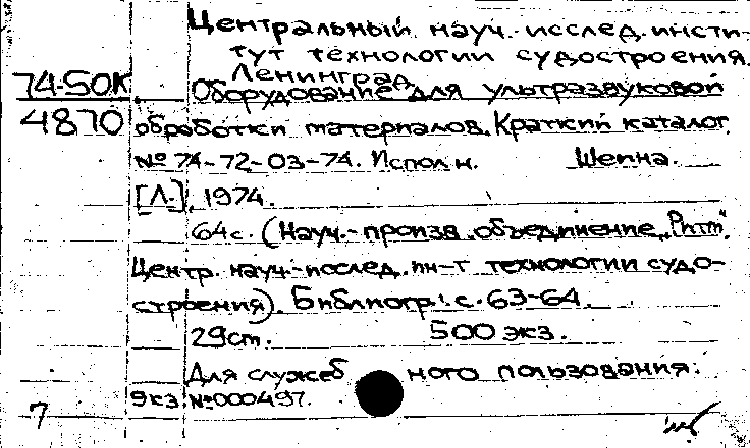 Центральный науч. исслед. инсти-
тут технологии судостроения.
Ленинград
74-50К Оборудование для ультразвуковой
4870 обработки материалов. Краткий каталог
№ 74-72-03-74. Исполн.
[Л.], 1974.
64с. (Науч.-произв. объединение „Ритм“
Центр. науч.-исслед. ин-т технологии судо-
строения). Библиогр.: с. 63-64.
29см. 500 экз.
Для служебного пользования.
экз. №000497.
7